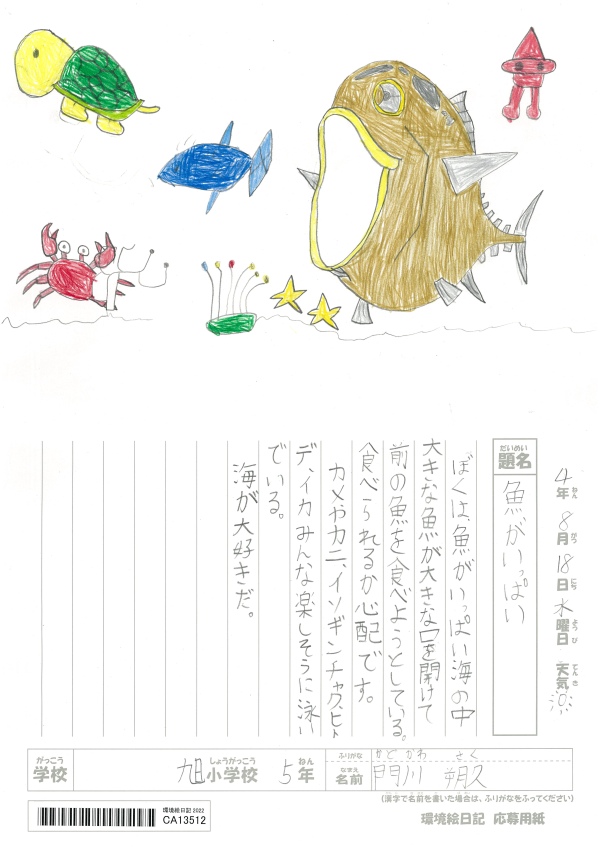 4年8月18日木曜日 天気
ねん がつ にち ようび てんき
だいめい
題名
魚がいっぱい
ぼくは、魚がいっぱい海の中
大きな魚が大きな口を開けて
前の魚を食べようとしている。
食べられるか心配です。
カメやカニ、イソギンチャク、ヒト
デ、イカみんな楽しそうに泳い
でいる。
海が大好きだ。
がっこう
学校
しょうがっこう ねん
旭小学校 5年
ふりがな かどかわ さく
なまえ
名前 門川 朔
(漢字で名前を書いた場合は、ふりがなをふってください)
環境絵日記 2022
CA13512
環境絵日記 応募用紙